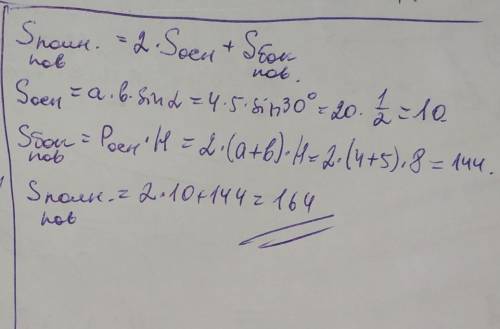 Sполн. пов = 2 · Sосн + Sбок пов.
Sосн = a · b · sin α = 4 · 5 · sin 30° = 20 · 1/2 = 10.
Sбок пов = Pосн · H = 2 · (a+b) · H = 2 · (4+5) · 8 = 144.
Sполн. пов = 2 · 10 + 144 = 164